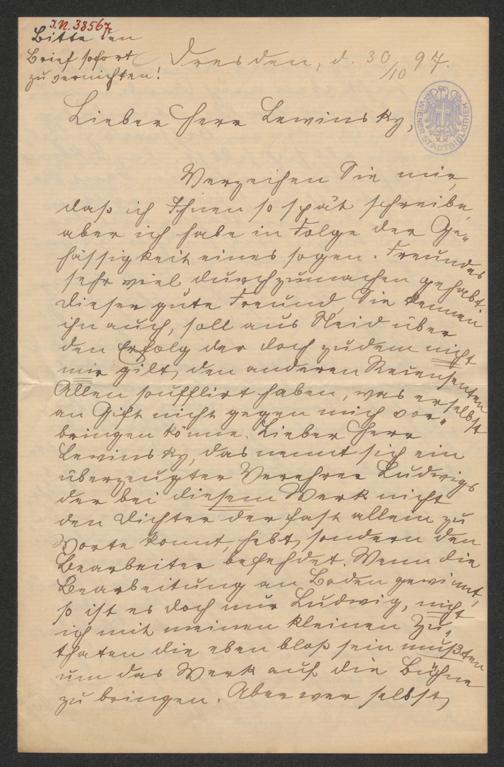 I.N. 38567
Bitte den
Brief sofort
zu vernichten!
Dresden, d. 30/10 97.
WIENER STADTBIBLIOTHEK
Lieber Herr Lewinsky,
Verzeihen Sie mir,
daß ich Ihnen so spät schreibe,
aber ich habe in Folge der Ge-
hässigkeit eines sogen. Freundes
sehr viel durchzumachen gehabt.
Dieser gute Freund, Sie kennen
ihn auch, soll aus Neid über
den Erfolg der doch zudem nicht
mir gilt, den anderen Recensenten
Allen soufflirt haben, was er selbst
an Gift nicht gegen mich vor-
bringen könne. Lieber Herr
Lewinsky, das nennt sich ein
überzeugter Verehrer Ludwigs
der bei diesem Werk nicht
den Dichter der fast allein zu
Worte kommt hebt, sondern den
Bearbeiter befehdet. Wenn die
Bearbeitung an Boden gewinnt,
so ist es doch nur Ludwig, nicht
ich mit meinen kleinen Zu-
thaten die eben bloß sein mußten
um das Werk auf die Bühne
zu bringen. Aber wer selbst